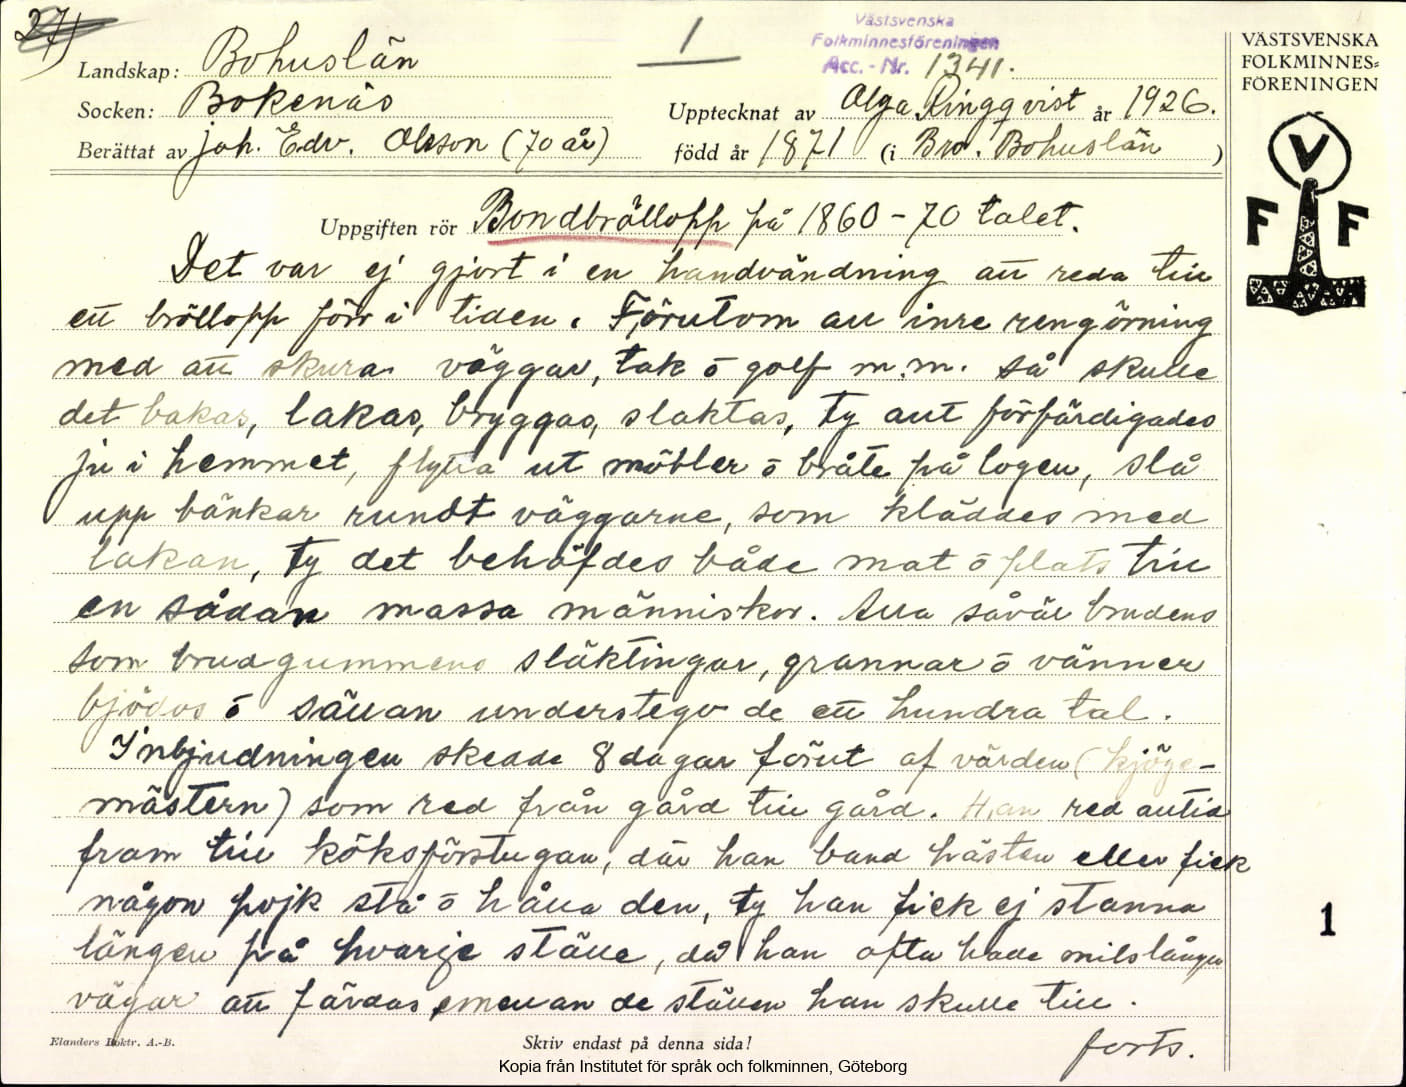 27)
1
Västsvenska
Folkminnesföreningen
Acc.-Nr. 1341.
VÄSTSVENSKA
FOLKMINNES=
FÖRENINGEN
V
F F
Landskap: Bohuslän
Socken: Bokenäs
Upptecknat av Olga Ringqvist år 1926.
Berättat av Joh. Edv. Olsson (70 år)
född år 1871 (i Bro. Bohuslän )
Uppgiften rör Bondbröllopp på 1860-70 talet.
Det var ej gjort i en handvändning att reda till
ett bröllopp förr i tiden. Förutom all inre rengörning
med att skura väggar, tak o golf m.m. så skulle
det bakas, lakas, bryggas, slaktas, ty allt förfärdigades
ju i hemmet, flytta ut möbler o bråte på logen, slå
upp bänkar rundt väggarne, som kläddes med
lakan, ty det behöfdes både mat o plats till
en sådan massa människor. Alla såväl brudens
som brudgummens släktingar, grannar o vänner
bjödos o sällan understego de ett hundra tal.
Inbjudningen skedde 8 dagar förut af värden (kjöge-
mästern) som red från gård till gård. Han red alltid
fram till köksförstugan, där han band hästen eller fick
någon pojk stå o hålla den, ty han fick ej stanna
längen på hvarje ställe, då han ofta hade milslånga
vägar att färdas emellan de ställen han skulle till.
forts.
1
Elanders Boktr. A.-B.
Skriv endast på denna sida!
Kopia från Institutet för språk och folkminnen, Göteborg